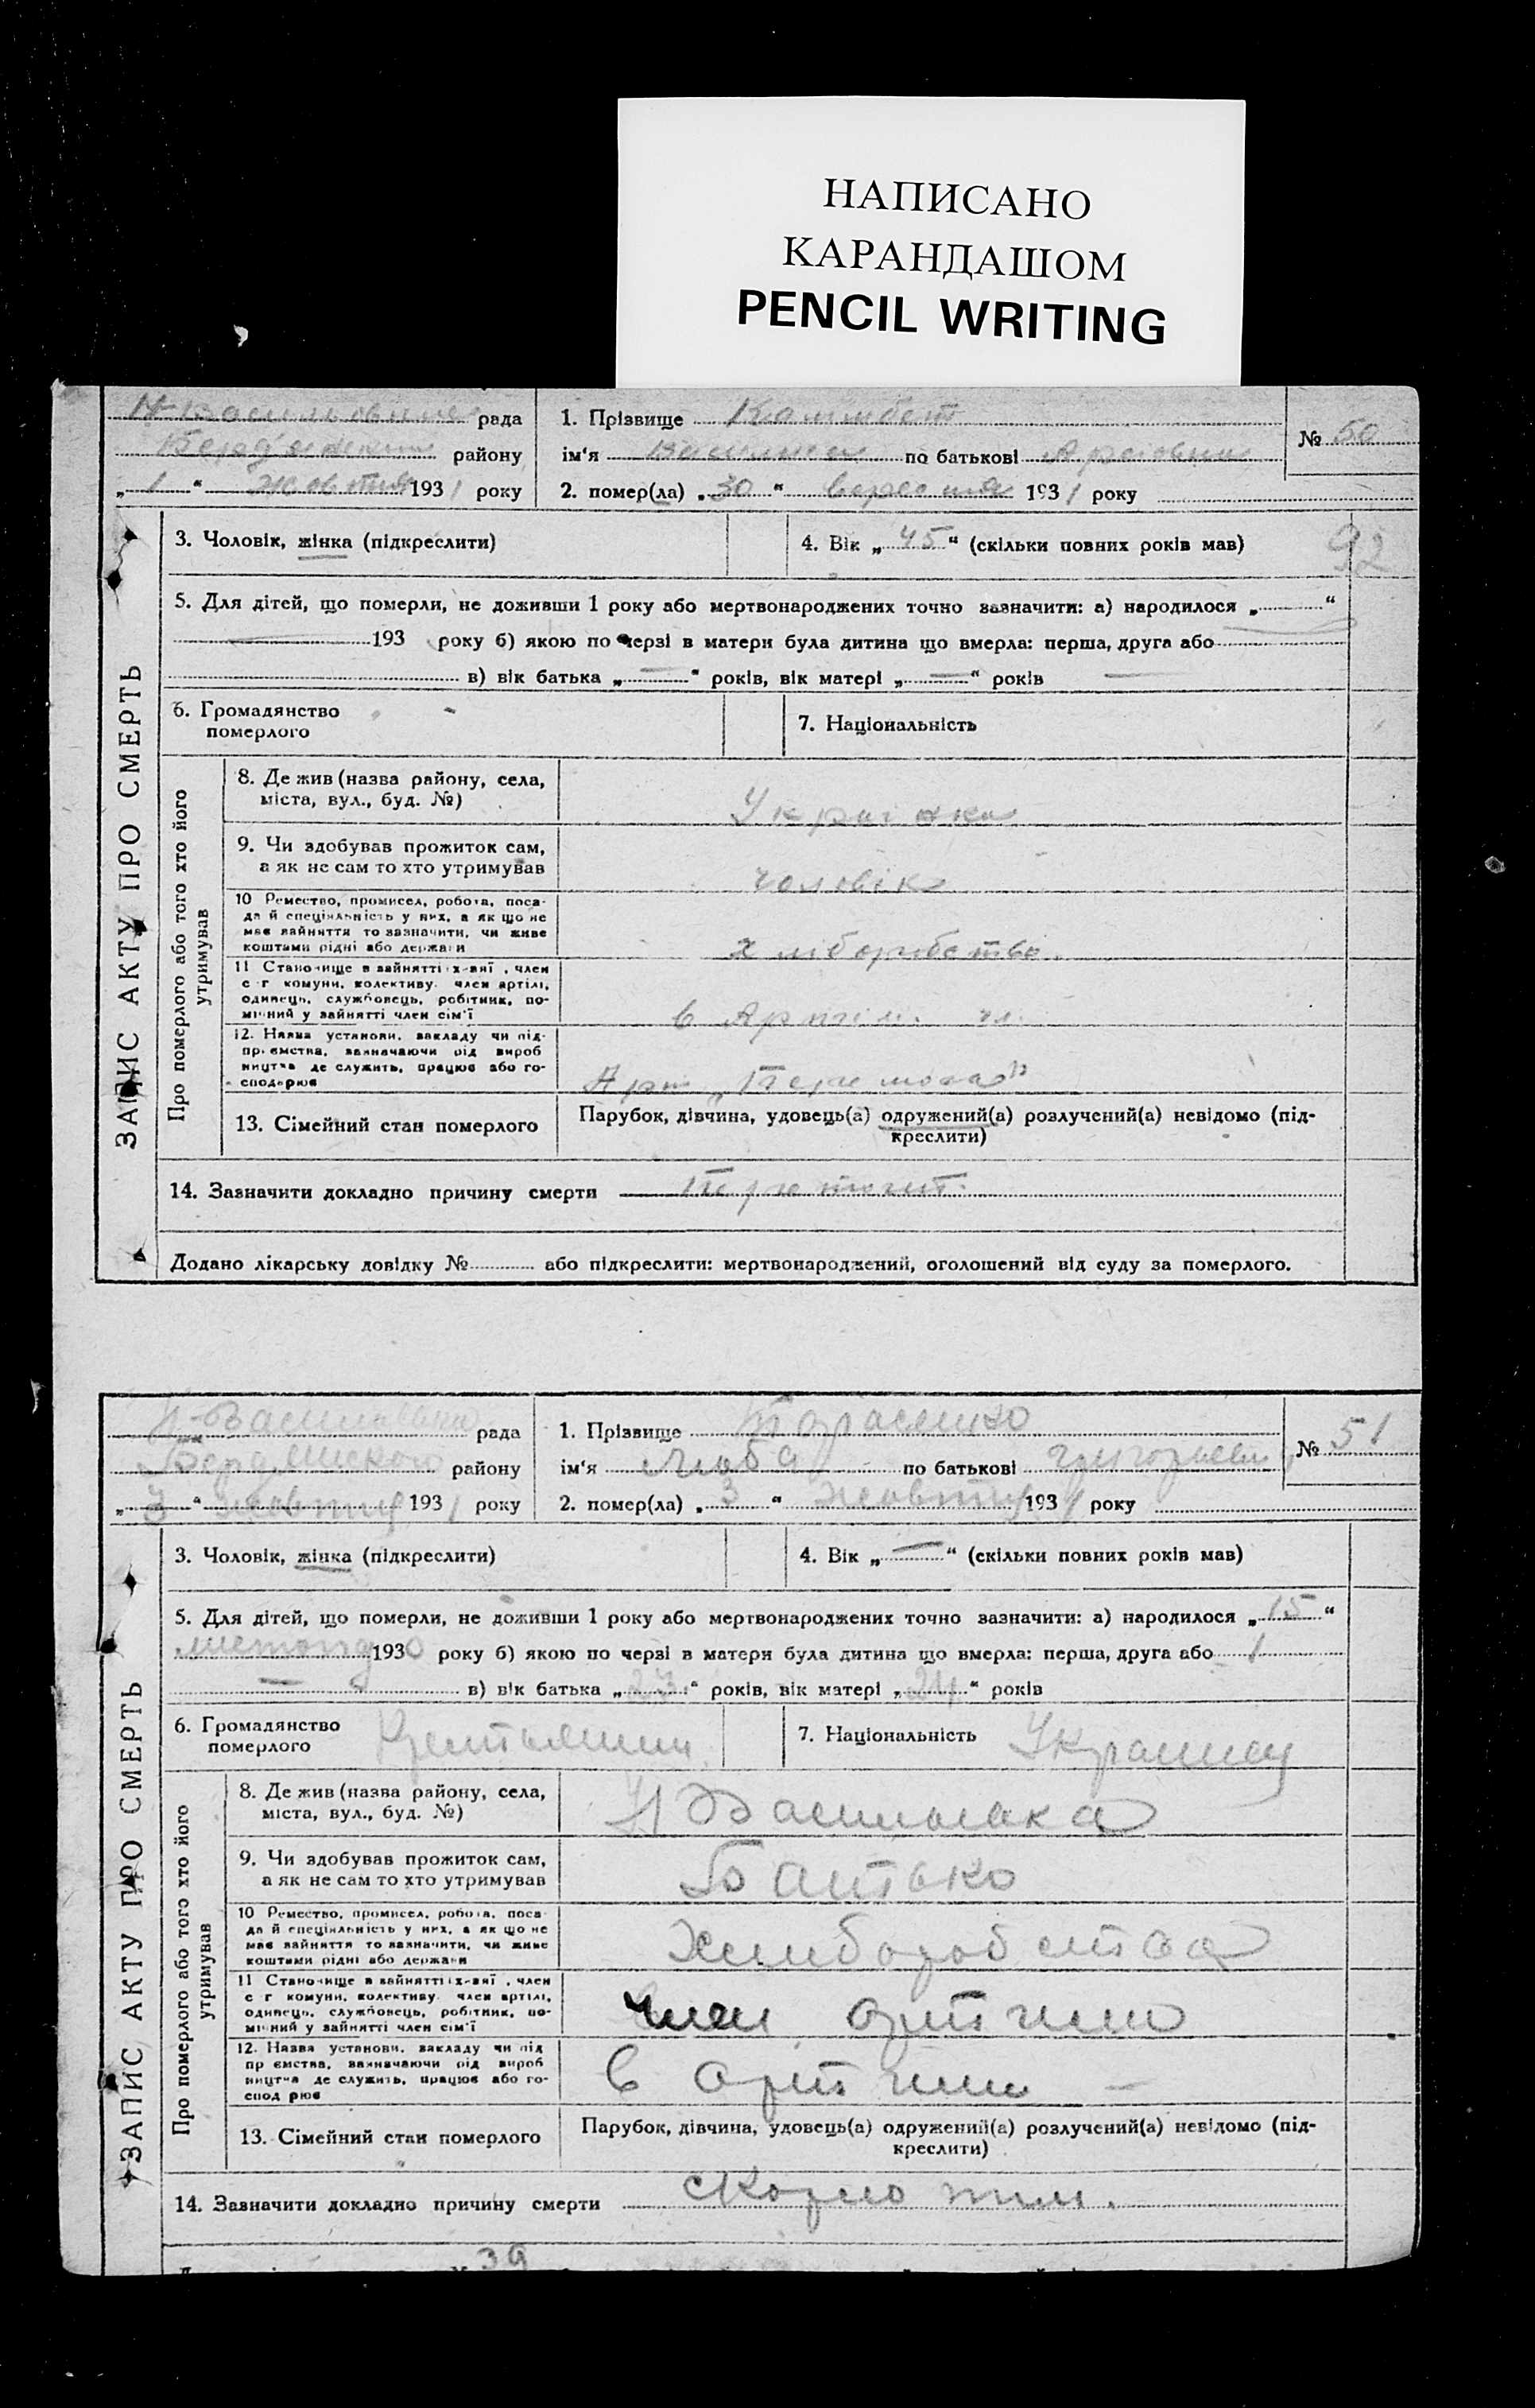 НАПИСАНО
КАРАНДАШОМ
PENCIL WRITING
рада
району
„ 1 “ Жовтня 1931 року
1. Прізвище
ім‘я по батькові
2. помер(ла) „ 30 “ вересня 1931 року
№ 50
92
ЗАПИС АКТУ ПРО СМЕРТЬ
3. Чоловік, жінка (підкреслити)
4. Вік „ 45 “ (скільки повних років мав)
5. Для дітей, що померли, не доживши 1 року або мертвонароджених точно зазначити: а) народилося „ “
193 року б) якою по черзі в матери була дитина що вмерла: перша, друга або
в) вік батька „ — “ років, вік матері „ — “ років —
6. Громадянство
померлого
7. Національність
Про померлого або того хто його
утримував
8. Де жив (назва району, села,
міста, вул., буд. №)
Українка
9. Чи здобував прожиток сам,
а як не сам то хто утримував
чоловік
10 Ремество, промисел, робота, поса-
да й спеціяльність у них, а як що не
має зайняття то зазначити, чи живе
коштами рідні або держави
хліборобство
11 Становище в зайнятті х-вяї, член
с г комуни, колективу, член артілі,
одинець, службовець, робітник, по-
мічний у зайнятті член сім‘ї
в Артілі чл.
12. Назва установи, закладу чи під-
приємства, зазначаючи рід вироб
ництва де служить, працює або го-
сподарює
Арт „Перемога“
13. Сімейний стан померлого
Парубок, дівчина, удовець(а) одружений(а) розлучений(а) невідомо (під-
креслити)
14. Зазначити докладно причину смерти
Додано лікарську довідку № або підкреслити: мертвонароджений, оголошений від суду за померлого.
Н-Василівська рада
Бердянського району
„ 3 “ жовтня 1931 року
1. Прізвище Тарасенко
ім‘я Люба по батькові Григориевн
2. помер(ла) „ 3 “ жовтня 1931 року
№ 51
ЗАПИС АКТУ ПРО СМЕРТЬ
3. Чоловік, жінка (підкреслити)
4. Вік „ — “ (скільки повних років мав)
5. Для дітей, що померли, не доживши 1 року або мертвонароджених точно зазначити: а) народилося „ 15 “
листопад 1930 року б) якою по черзі в матери була дитина що вмерла: перша, друга або 1
— в) вік батька „ 23 “ років, вік матері „ 24 “ років
6. Громадянство
померлого
7. Національність
Про померлого або того хто його
утримував
8. Де жив (назва району, села,
міста, вул., буд. №)
Н Василивка
9. Чи здобував прожиток сам,
а як не сам то хто утримував
Батько
10 Ремество, промисел, робота, поса-
да й спеціяльність у них, а як що не
має зайняття то зазначити, чи живе
коштами рідні або держави
Хлиборобства
11 Становище в зайнятті х-вяї, член
с г комуни, колективу, член артілі,
одинець, службовець, робітник, по-
мічний у зайнятті член сім‘ї
член артили
12. Назва установи, закладу чи під
приємства, зазначаючи рід вироб
ництва де служить, працює або го-
спод рює
в артили —
13. Сімейний стан померлого
Парубок, дівчина, удовець(а) одружений(а) розлучений(а) невідомо (під-
креслити)
14. Зазначити докладно причину смерти
39